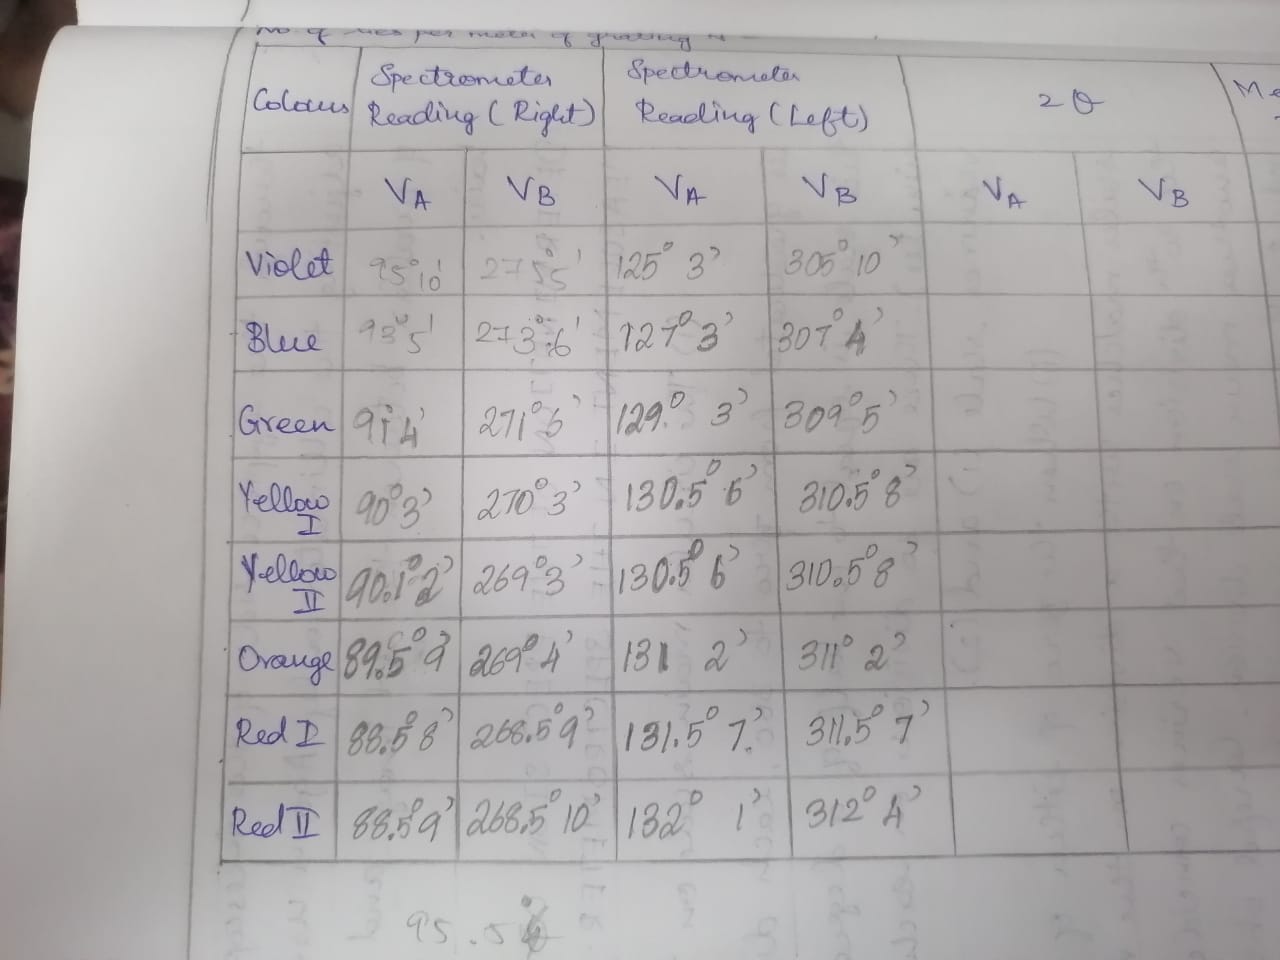 No of lines per meter of grating n =
Colours Spectrometer Reading (Right) Spectrometer Reading (Left) 2θ
VA VB VA VB VA VB
Violet 95° 10' 275° 5' 125° 3' 305° 10'
Blue 93° 5' 273° 6' 127° 3' 307° 4'
Green 91° 4' 271° 6' 129.° 3' 309° 5'
Yellow I 90° 3' 270° 3' 130.5° 6' 310.5° 8'
Yellow II 90.1° 2' 269° 3' 130.5° 6' 310.5° 8'
Orange 89.5° 9' 269° 4' 131 2' 311° 2'
Red I 88.5° 8' 268.5° 9' 131.5° 7' 311.5° 7'
Red II 88.5° 9' 268.5° 10' 132° 1' 312° 4'
95.5